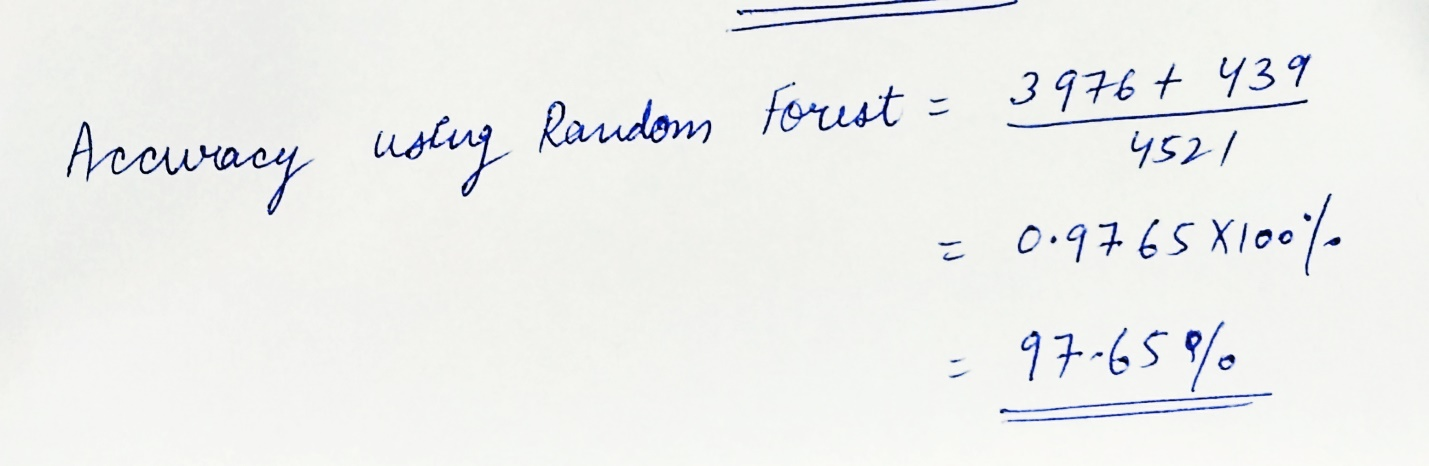 Accuracy using Random Forest = 3976 + 439
4521
= 0.9765 X100%
= 97.65%